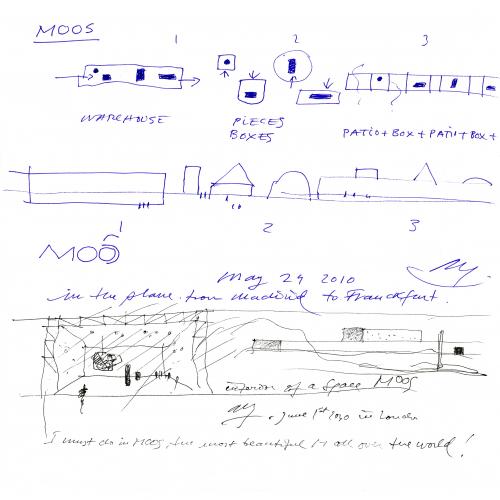 MOOS
1 2 3
WAREHOUSE
PIECES
BOXES
PATIO + BOX + PATIO + BOX +
1 2 3
MOO
May 29 2010
in the plane from Madrid to Franckfurt.
interior of a space MOOS
June 1st 2010 in London
I must do in MOOS, the most beautiful all over the world!